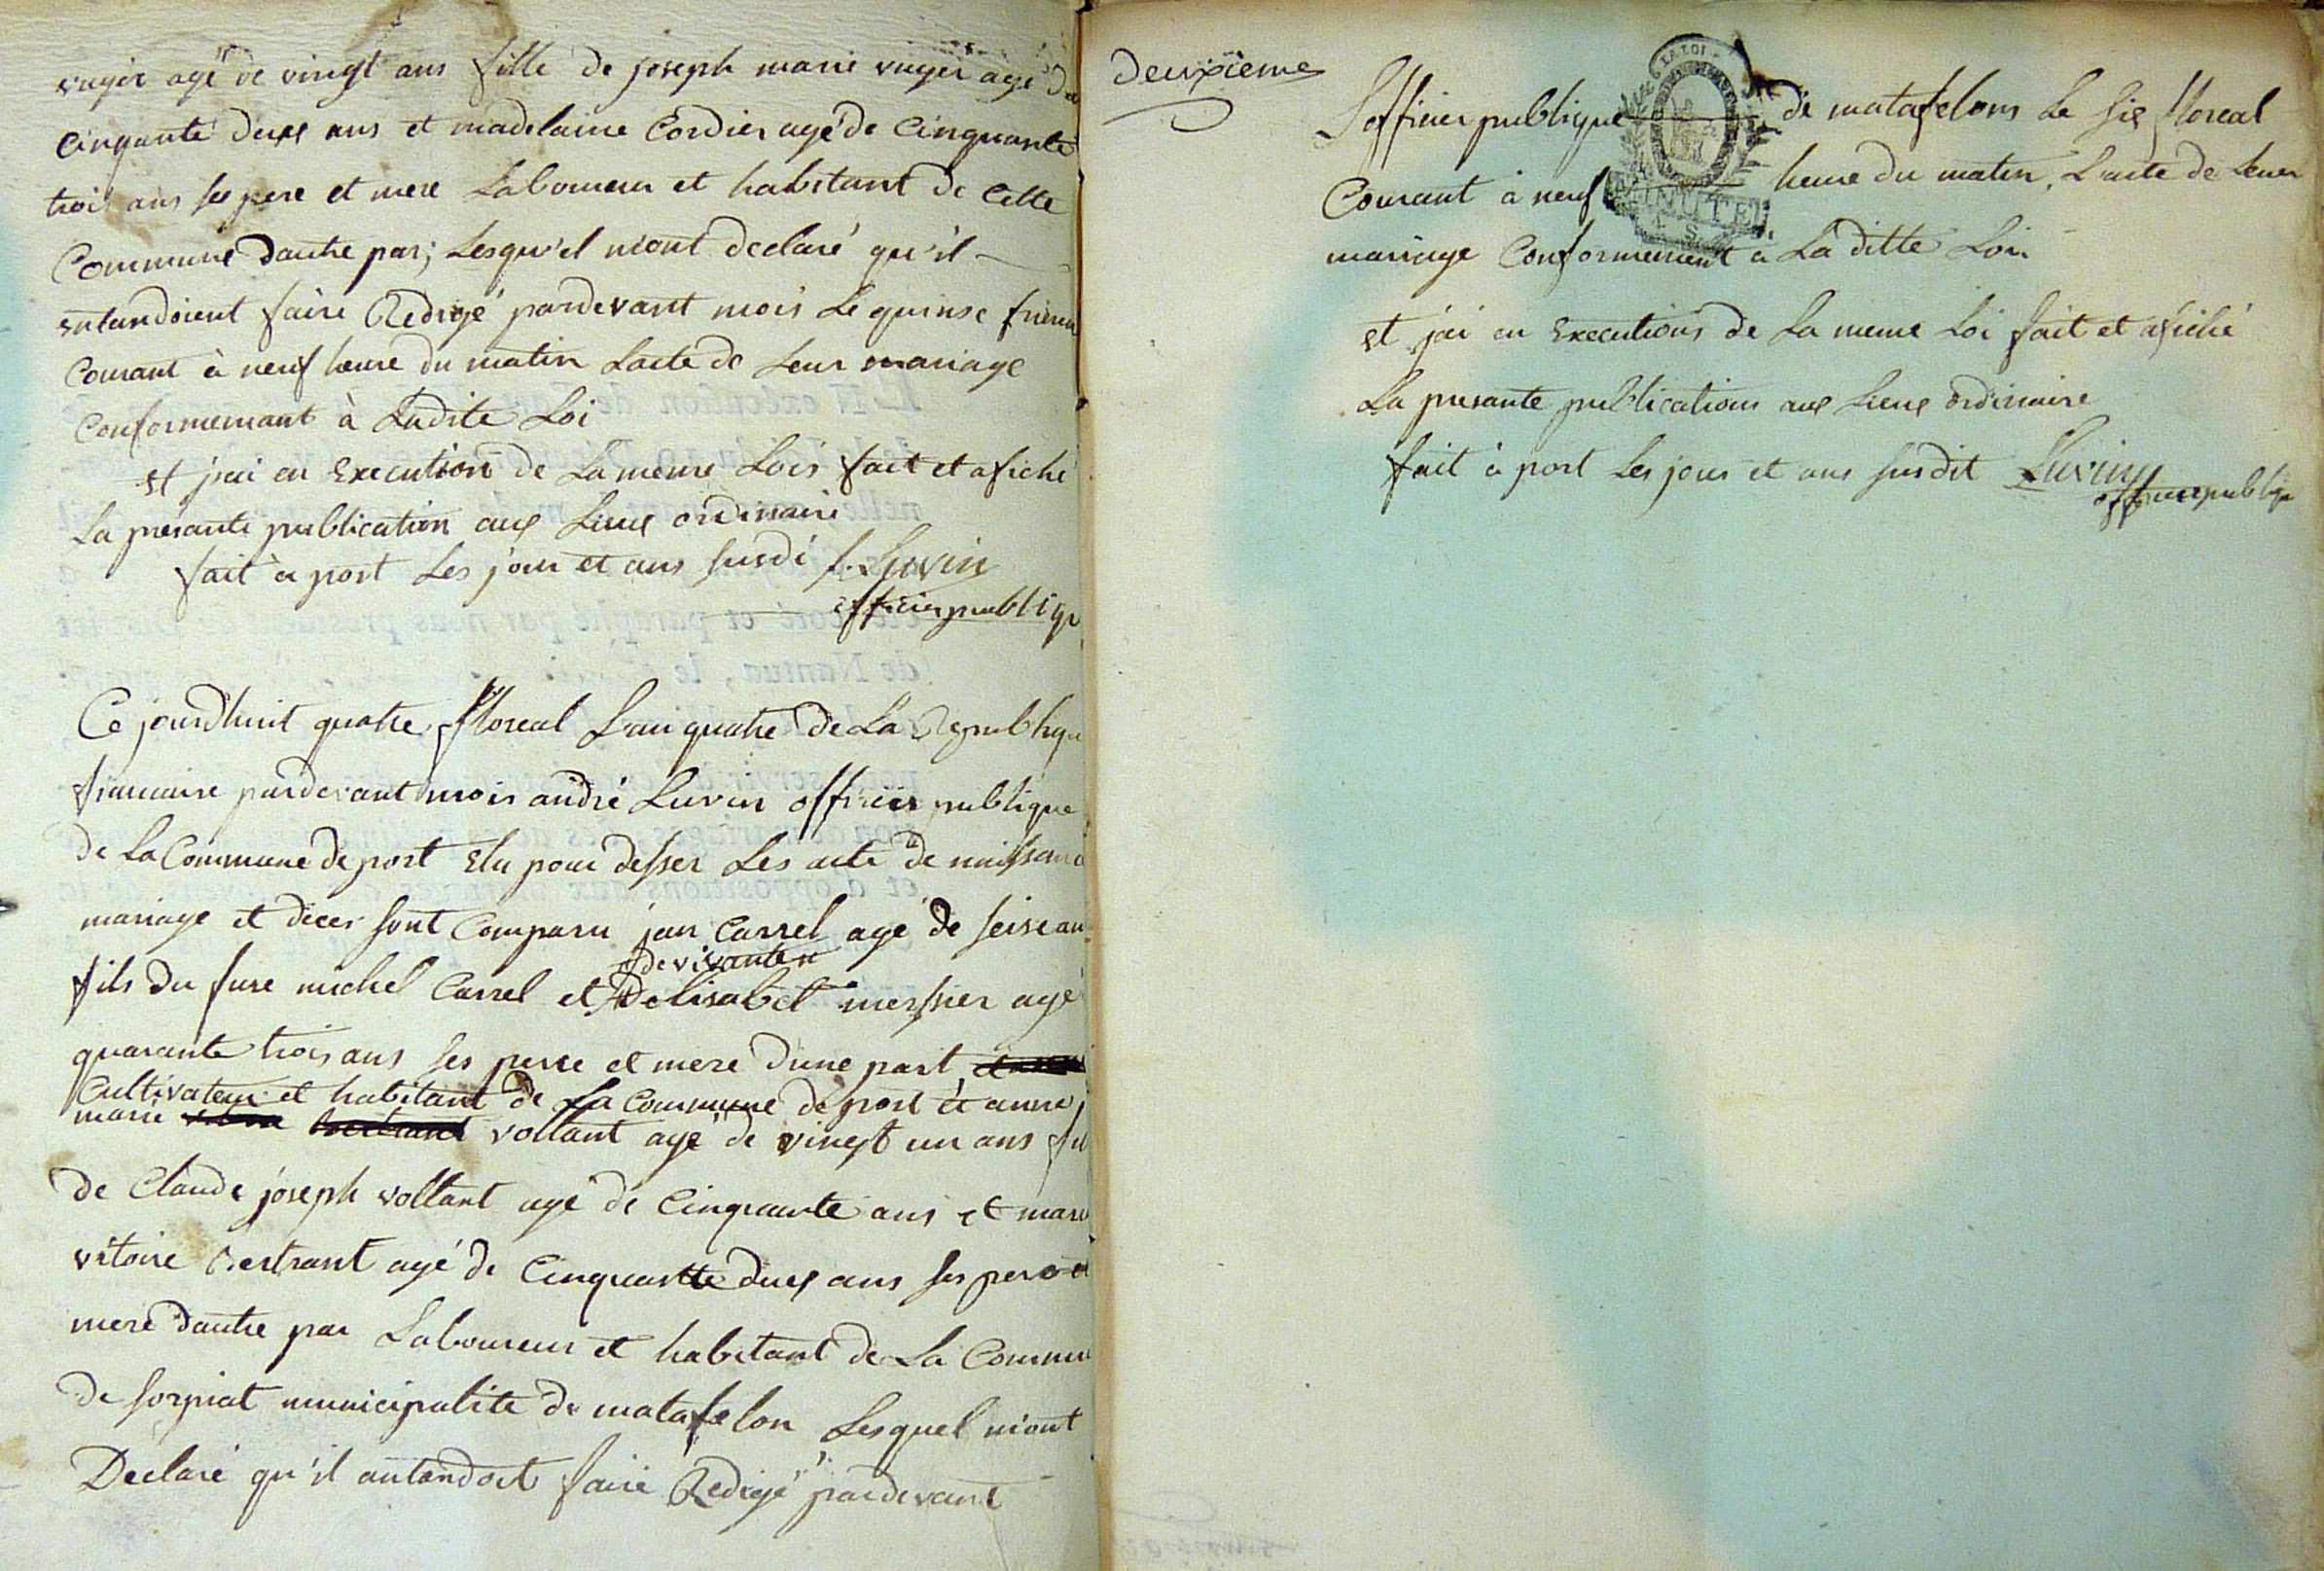 vuyer agé de vingt ans fille de joseph marie vuyer agé de
cinqante deux ans et madelaine Cordier agé de Cinquante
trois ans ses pere et mere Laboureur et habitant de Cette
Commune dautre par; Lesqu'el m'ont declaré qu'il
entandoient faire Redigé pardevant mois Le quinse frimer
Courant à neuf heure du matin Lacte de Leur mariage
Conformemant à Ladite Loi
et jai en Execution de La meme Lois fait et afiché
La presante publication aux Lieux ordinaire
fait à port Les jour et ans susdi f. Luvin
officier publiqu
Ce jourdhuit quatre floreal Lan quatre de La Republiqu
francaise pardevant mois andré Luvin officier publique
de La Commune de port Elu pour desser Les acte de naissanc
mariage et deces sont Comparu jan Carrel agé de seise an
devivanten
fils du fure michel Carrel et Delisabet merssier agé
quarante trois ans ses perre et mere d'une part
Cultivateur et habitant de La Commune de port et anne
marie voltant agé de vingt un ans fil
de Claude joseph voltant agé de Cinquante ans et mari
vitoire Bertrant agé de Cinquantte deux ans ses pere et
mere dautre par Laboureur et habitant de La Commu
de sorpiat municipalite de matafelon Lesquel m'ont
Declaré qu'il antandoit faire Redigé pardevant
deuxieme
Lofficier publique de matafelons Le six floreal
Courant à neuf heure du matin, Lacte de Leur
LA LOI
MINUTE
mariage Conformement à La ditte Loi
et jai en Executions de La meme Loi fait et afiché
La presante publications aux Lieux ordinaire
fait à port Les jour et ans susdit Luvin
officier publiqu